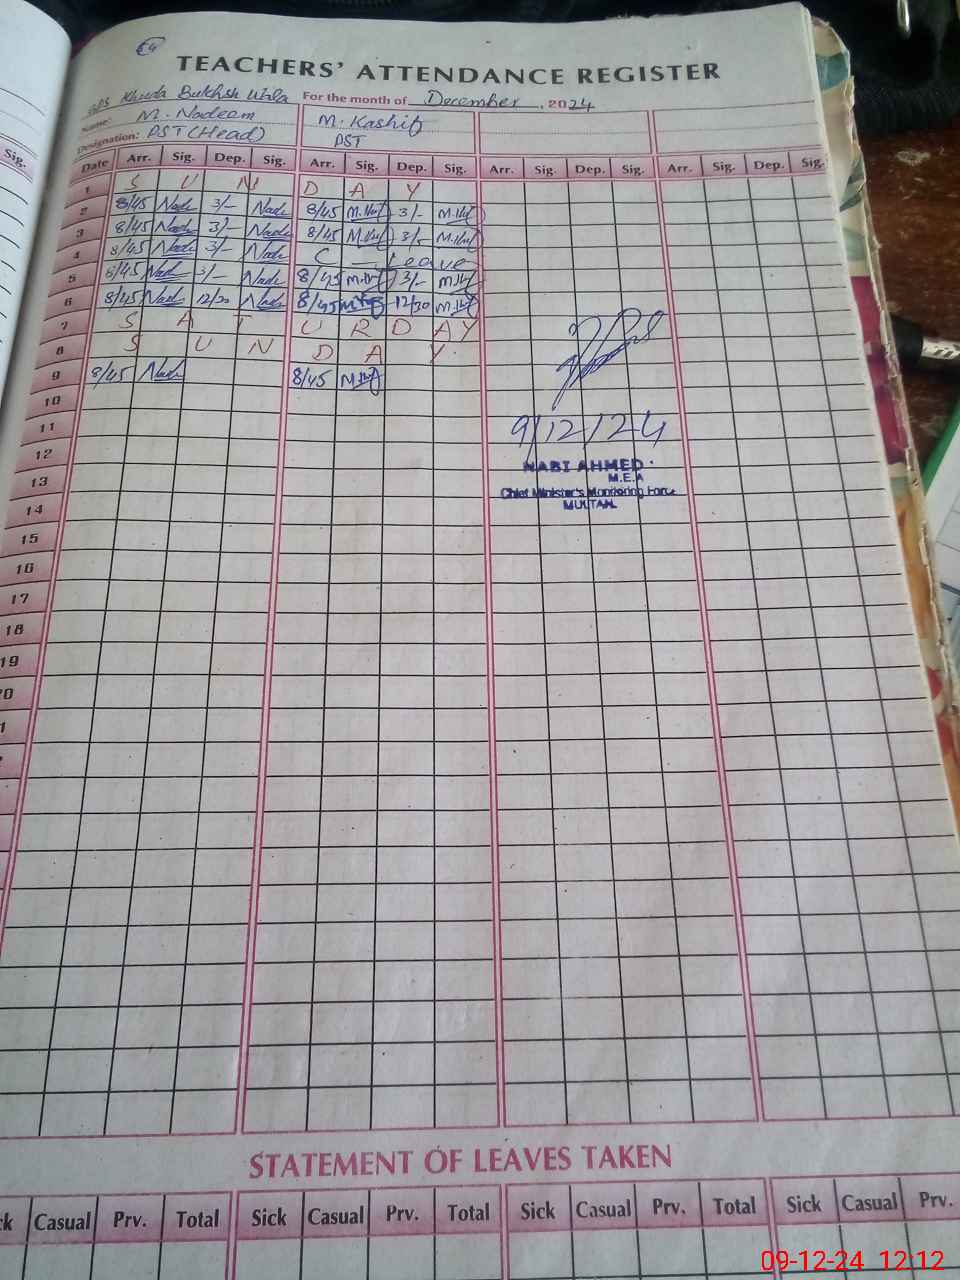 64
TEACHERS' ATTENDANCE REGISTER
GPS Khuda Bukhsh Wala For the month of December, 2024
Name: M. Nadeem M. Kashif
Designation: PST (Head) PST
Sig. Date Arr. Sig. Dep. Sig. Arr. Sig. Dep. Sig. Arr. Sig. Dep. Sig. Arr. Sig. Dep. Sig.
1 S U N D A Y
2 8/45 Nade 3/- Nade 8/45 3/-
3 8/45 Nade 3/- Nade 8/45 3/-
4 8/45 Nade 3/- Nade C — Leave
5 8/45 Nade 3/- Nade 8/45 3/-
6 8/45 Nade 12/30 Nade 8/45 12/30
7 S A T U R D A Y
8 S U N D A Y
9 8/45 Nade 8/45
10
11 9/12/24
12 NABI AHMED
13 M.E.A
Chief Minister's Monitoring Force
14 MULTAN.
15
16
17
18
19
20
1
STATEMENT OF LEAVES TAKEN
ck Casual Prv. Total Sick Casual Prv. Total Sick Casual Prv. Total Sick Casual Prv.
09-12-24 12:12